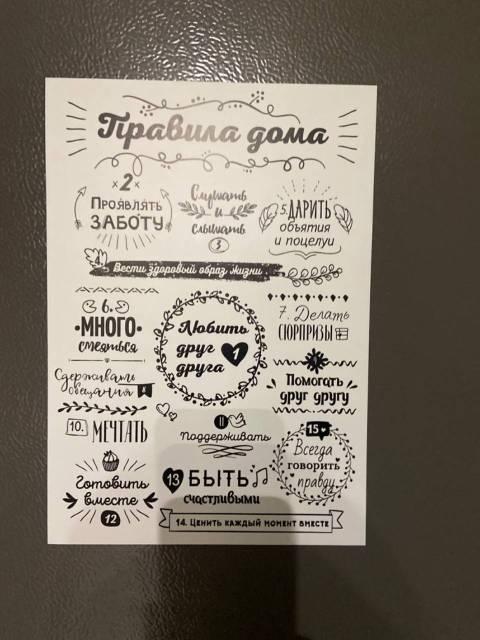 Правила дома
2
Проявлять
ЗАБОТУ
Слушать
и
слышать
3
5. ДАРИТЬ
объятия
и поцелуи
Вести здоровый образ жизни
6.
МНОГО
смеяться
Любить
друг
друга
1
7. Делать
СЮРПРИЗЫ
Сдерживать
обещания
Помогать
друг другу
10. МЕЧТАТЬ
11
Поддерживать
15
Всегда
говорить
правду
Готовить
вместе
12
13 БЫТЬ
счастливыми
14. Ценить каждый момент вместе